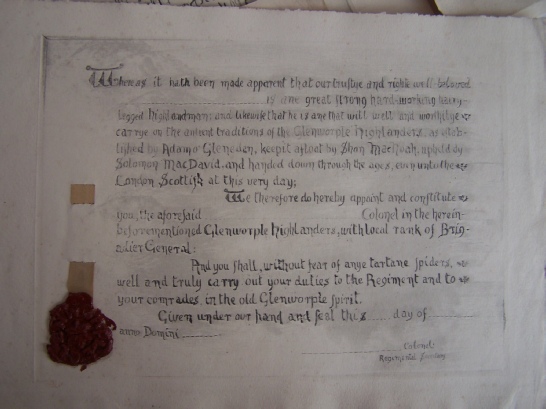 Whereas it hath been made apparent that our trustye and richte well-beloved
.................... is ane great strong hard-working hairy-
legged highlandman; and likewise that he is ane that will well and worthilye
carrye on the ancient traditions of the Glenworple Highlanders, as estab-
lished by Adamo Gleneden, keepit afloat by Shon MacNoah, upheld by
Solomon MacDavid, and handed down through the ages, even unto the
London Scottish at this very day;
We therefore do hereby appoint and constitute
you, the aforesaid Colonel in the herein-
beforementioned Glenworple Highlanders, with local rank of Brig-
adier General:
And you shall, without fear of anye tartane spiders,
well and truly carry out your duties to the Regiment and to
your comrades, in the old Glenworple spirit.
Given under our hand and seal this ...... day of ........
anno Domini ..........
Colonel
Regimental